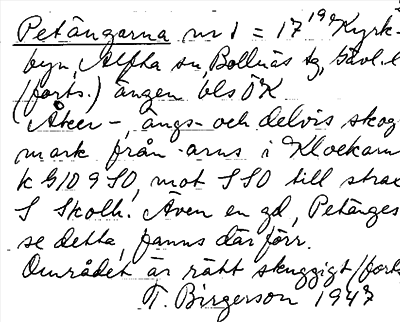 Petängarna nr 1 = 17 19 Kyrk-
byn, Alfta sn, Bollnäs tg, Gävl. l
(forts.) ängen bls ÖK
Åker-, ängs- och delvis skog
mark från -arns i Klockarn
k G10 9 SO, mot SSO till strax
S Skolh. Även en gd, Petänges
se detta, fanns där förr.
Området är rätt skuggigt (forts
T. Birgerson 1947